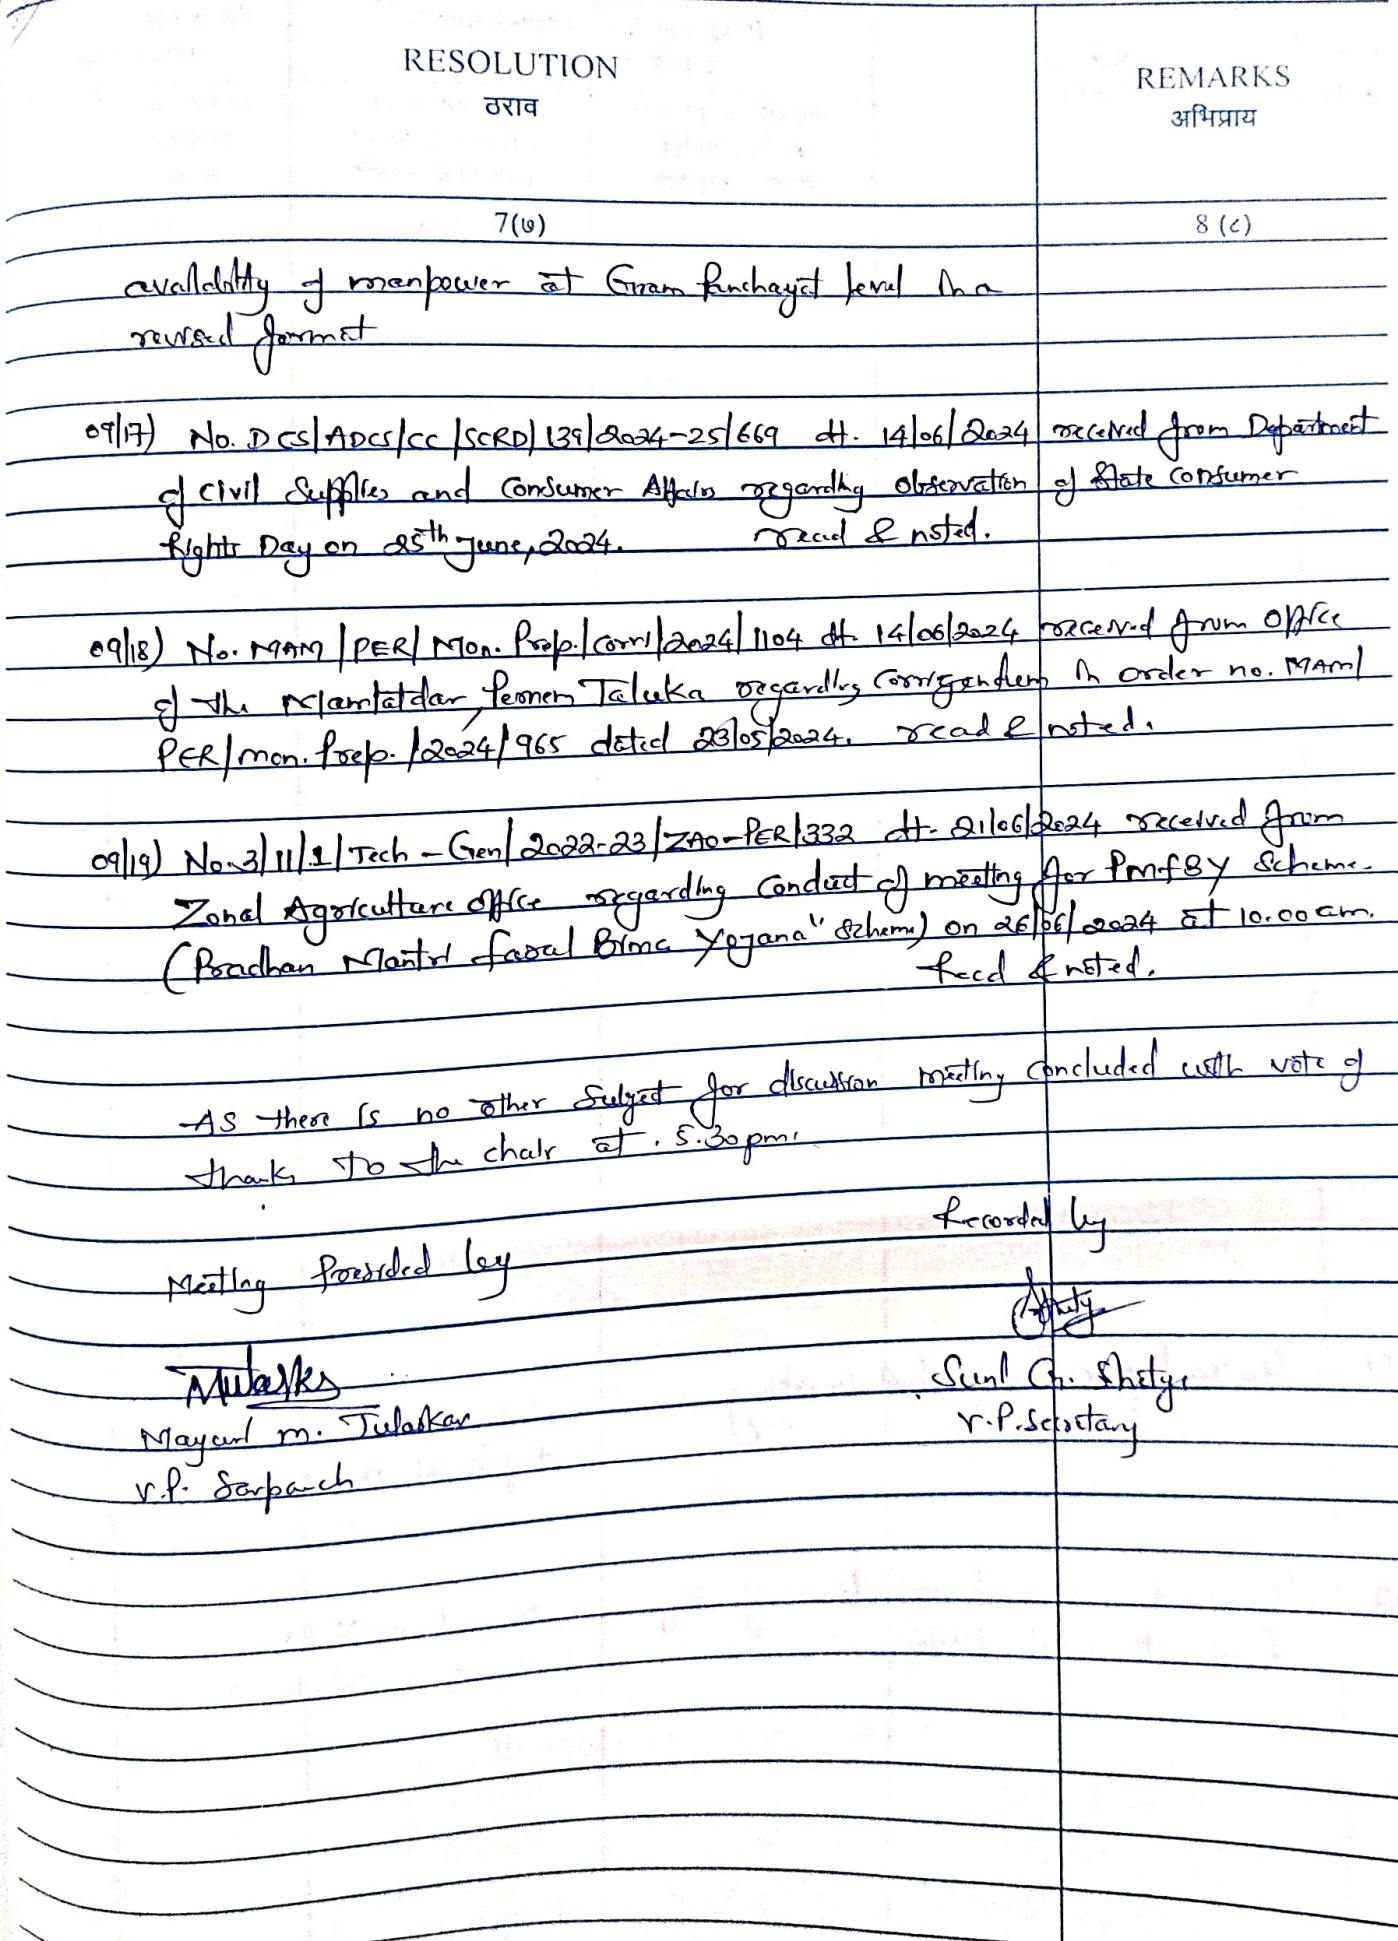 RESOLUTION
ठराव
REMARKS
अभिप्राय
7(७)
8 (८)
availability of manpower at Gram Panchayat level in a
revised format
09/17) No. DCS/ADCS/CC/SCRD/139/2024-25/669 dt. 14/06/2024 received from Department
of Civil Supplies and Consumer Affairs regarding observation of State Consumer
Rights Day on 25th June, 2024. read & noted.
09/18) No. MAM/PER/Mon. Prep./Corri/2024/1104 dt. 14/06/2024 received from Office
of the Mamlatdar, Pernem Taluka regarding Corrigendum in order no. MAM/
PER/mon. Prep./2024/965 dated 23/05/2024. read & noted.
09/19) No. 3/11/1/Tech-Gen/2022-23/ZAO-PER/332 dt. 21/06/2024 received from
Zonal Agriculture Office regarding Conduct of meeting for PMFBY Scheme.
(Pradhan Mantri Fasal Bima Yojana" Scheme) on 26/06/2024 at 10.00 am.
Read & noted.
As there is no other subject for discussion meeting concluded with vote of
thanks to the chair at. 5.30 pm.
Recorded by
Meeting Presided by
Mayur m. Tulaskar
V.P. Sarpanch
Sunil G. Shetye
V.P. Secretary